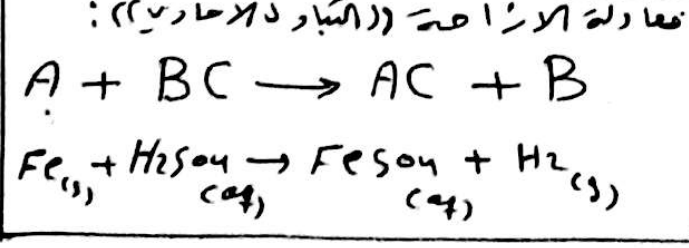 معادلة الازاحة ((التبادل الاحادي)):
A + BC → AC + B
Fe(s) + H2SO4(aq) → FeSO4(aq) + H2(g)